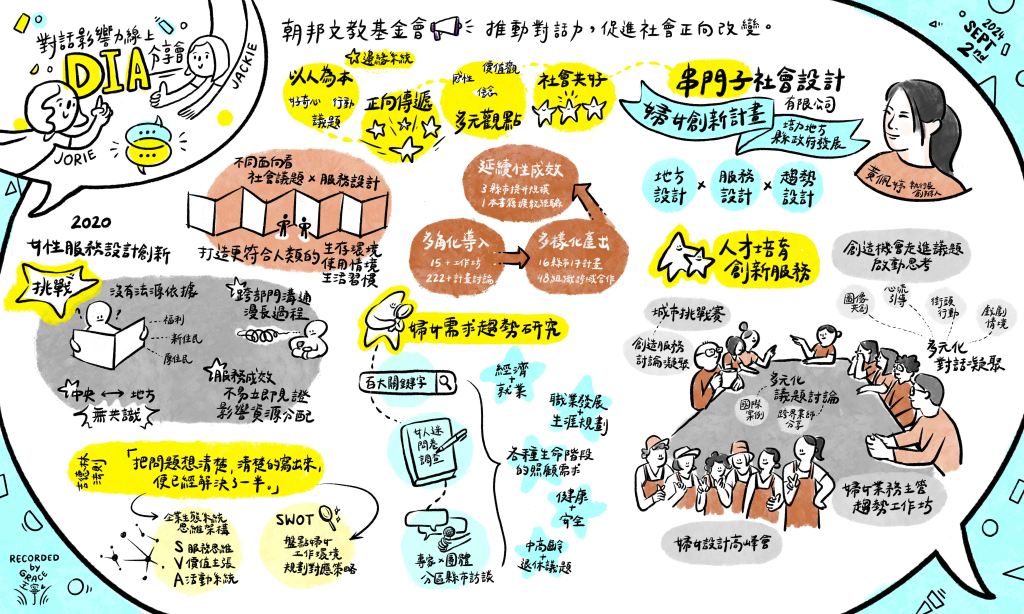 對話影響力線上
分享會
DIA
JORIE
JACKIE
朝邦文教基金會
推動對話力，促進社會正向改變。
2024
SEPT
2nd
以人為本
好奇心 行動
議題
邊緣系統
正向傳遞
感性 價值觀
信念
多元觀點
社會共好
串門子社會設計
有限公司
婦女創新計畫
培力地方
縣政府發展
黃佩婷 執行長
創辦人
地方設計 × 服務設計 × 趨勢設計
不同面向看
社會議題 × 服務設計
打造更符合人類的
生存環境
使用情境
生活習慣
延續性成效
3縣市提升規模
1本書籍擴散經驗
多角化導入
15+工作坊
222+計畫討論
多樣化產出
16縣市17計畫
48組織跨域合作
2020
女性服務設計創新
挑戰
沒有法源依據
福利
新住民
原住民
跨部門溝通
漫長過程
中央 ↔ 地方
無共識
服務成效
不易立即見證
影響資源分配
吉德林
法則
「把問題想清楚，清楚的寫出來，
便已經解決了一半。」
企業生態系統
思維架構
S 服務思維
V 價值主張
A 活動系統
SWOT
盤點婦女
工作環境
規劃對應策略
婦女需求趨勢研究
百大關鍵字
女人迷
問卷
調查
專家×團體
分區縣市訪談
經濟
+
就業
職業發展
+
生涯規劃
各種生命階段
的照顧需求
健康
+
安全
中高齡
+
退休議題
人才培育
創新服務
創造機會走進議題
啟動思考
圖像
共創
心流
引導
街頭
行動
戲劇
情境
多元化
對話凝聚
城市挑戰賽
創造服務
討論凝聚
多元化
議題討論
國際
案例
跨界業師
分享
婦女業務主管
趨勢工作坊
婦女設計高峰會
RECORDED
by
GRACE